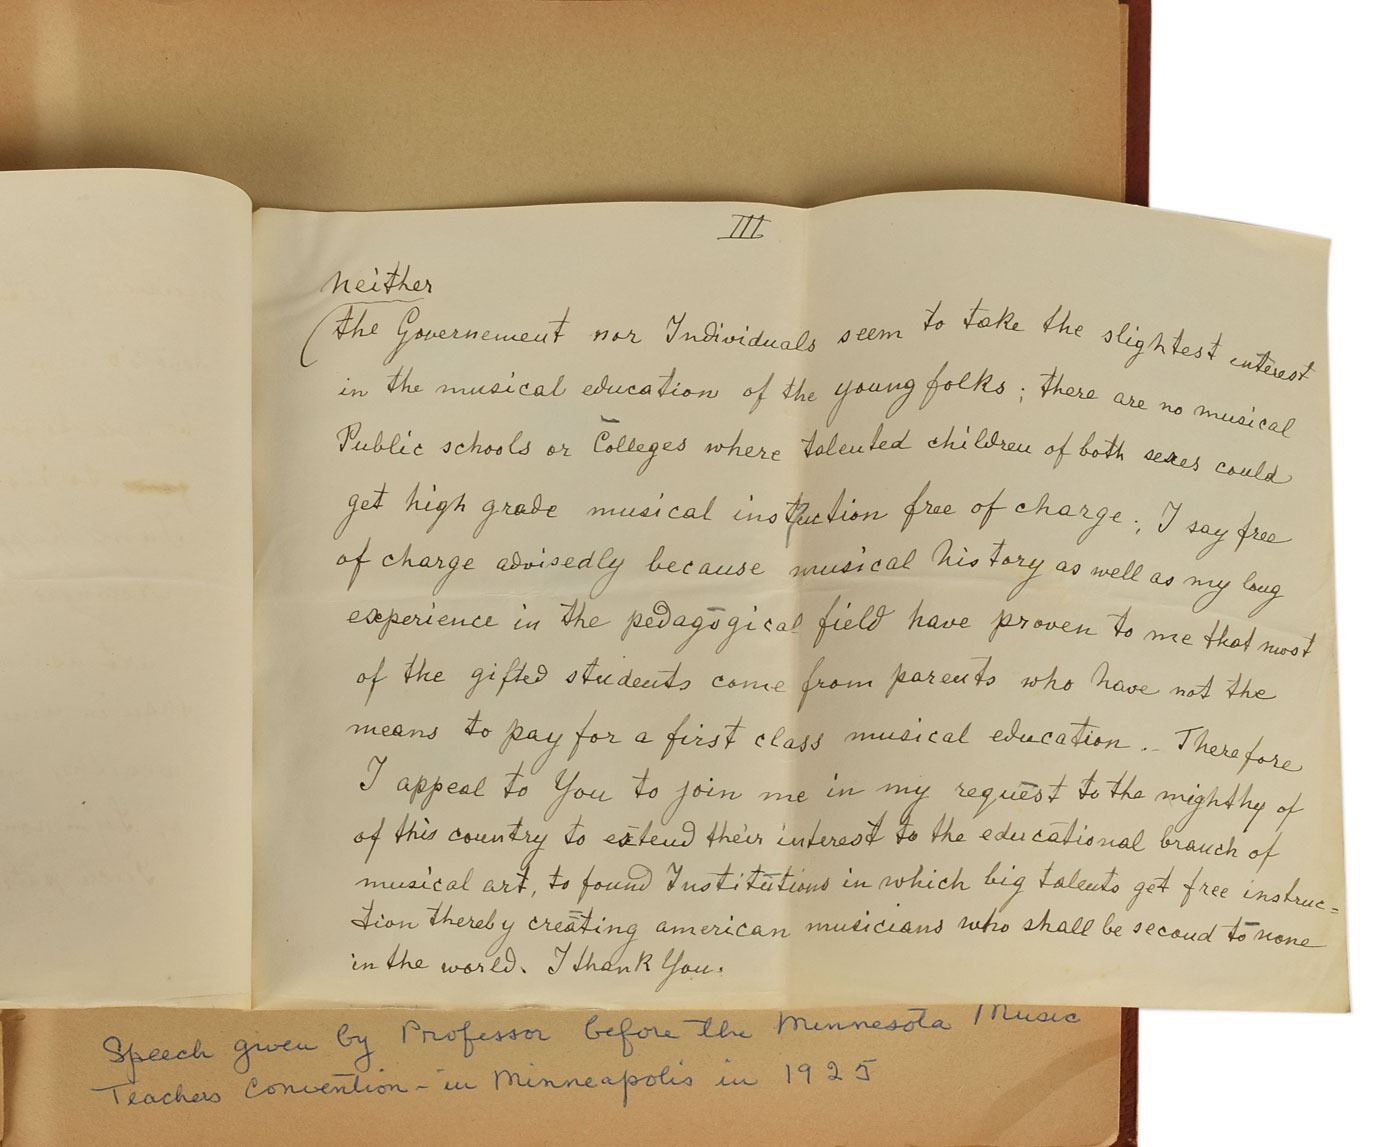 III
neither
(the Governement nor Individuals seem to take the slightest interest
in the musical education of the young folks; there are no musical
Public schools or Colleges where talented children of both sexes could
get high grade musical instruction free of charge; I say free
of charge advisedly because musical history as well as my long
experience in the pedagogical field have proven to me that most
of the gifted students come from parents who have not the
means to pay for a first class musical education. – Therefore
I appeal to You to join me in my request to the mighthy of
of this country to extend their interest to the educational branch of
musical art, to found Institutions in which big talents get free instruc=
tion thereby creating american musicians who shall be second to none
in the world. I thank You.
Speech given by Professor before the Minnesota Music
Teachers Convention – in Minneapolis in 1925